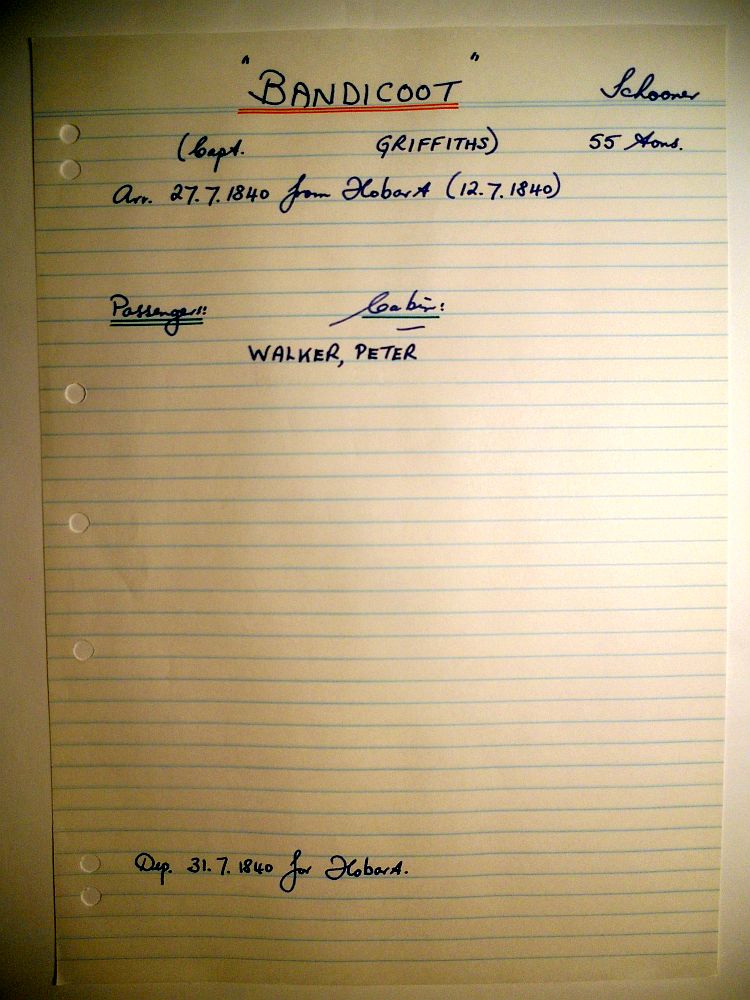 "BANDICOOT" Schooner
(Capt. GRIFFITHS) 55 tons.
Arr. 27.7.1840 from Hobart (12.7.1840)
Passengers: Cabin:
WALKER, PETER
Dep. 31.7.1840 for Hobart.